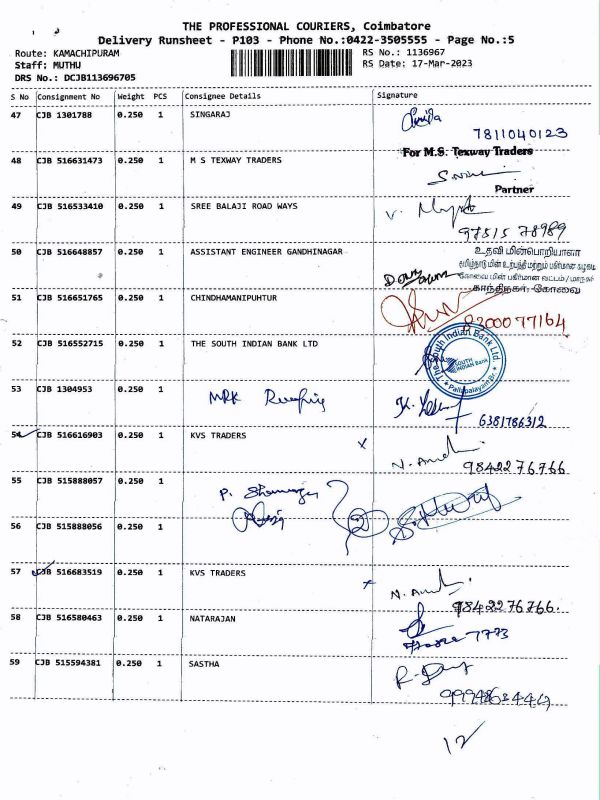 THE PROFESSIONAL COURIERS, Coimbatore
Delivery Runsheet - P103 - Phone No.:0422-3505555 - Page No.:5
Route: KAMACHIPURAM
RS No.: 1136967
Staff: MUTHU
RS Date: 17-Mar-2023
DRS No.: DCJB113696705
S No Consignment No Weight PCS Consignee Details Signature
47 CJB 1301788 0.250 1 SINGARAJ
7811040123
48 CJB 516631473 0.250 1 M S TEXWAY TRADERS For M.S. Texway Traders
Partner
49 CJB 516533410 0.250 1 SREE BALAJI ROAD WAYS
97515 78989
50 CJB 516648857 0.250 1 ASSISTANT ENGINEER GANDHINAGAR உதவி மின்பொறியாளர்
காந்திநகர், கோவை
51 CJB 516651765 0.250 1 CHINDHAMANIPUHTUR
8300077164
52 CJB 516552715 0.250 1 THE SOUTH INDIAN BANK LTD
The South Indian Bank Ltd.
SOUTH INDIAN Bank
53 CJB 1304953 0.250 1 MRK
6381786312
54 CJB 516616903 0.250 1 KVS TRADERS x
9842276766
55 CJB 515888057 0.250 1
56 CJB 515888056 0.250 1
57 CJB 516683519 0.250 1 KVS TRADERS x
9842276766.
58 CJB 516580463 0.250 1 NATARAJAN
59 CJB 515594381 0.250 1 SASTHA
12